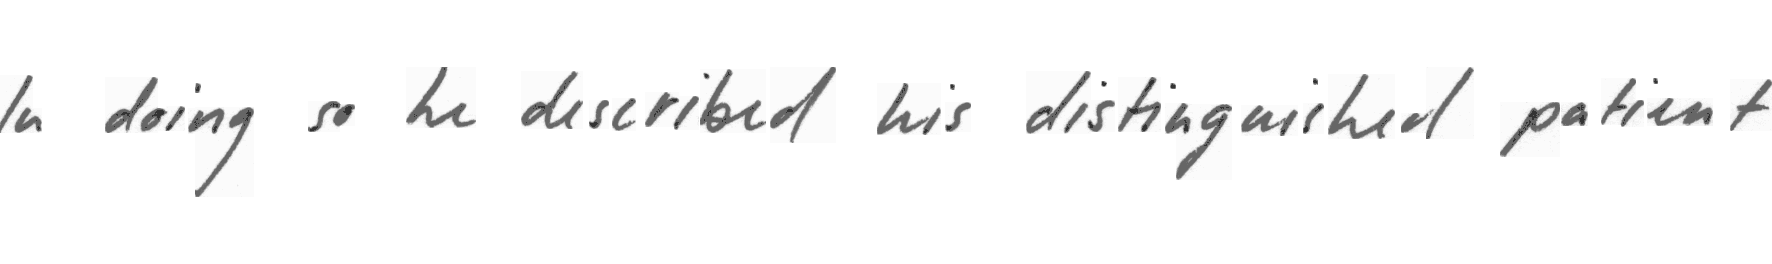 In doing so he described his distinguished patient